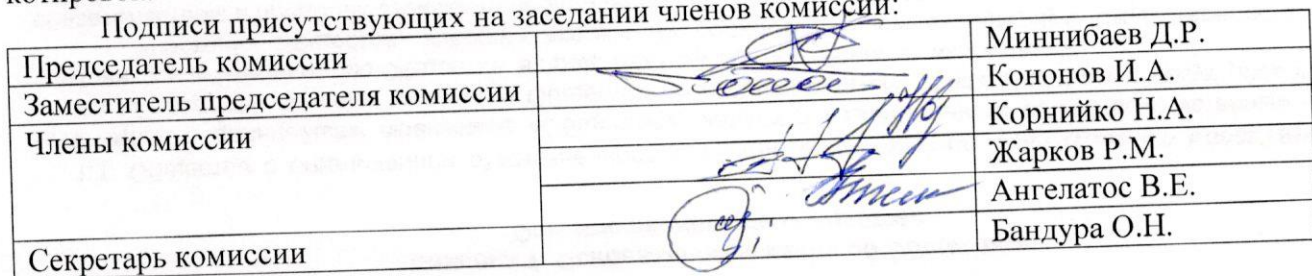 Подписи присутствующих на заседании членов комиссии:
Председатель комиссии Миннибаев Д.Р.
Заместитель председателя комиссии Кононов И.А.
Члены комиссии Корнийко Н.А.
Жарков Р.М.
Ангелатос В.Е.
Секретарь комиссии Бандура О.Н.